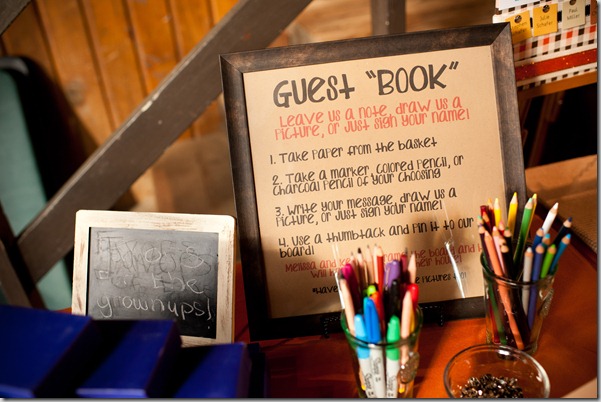 Julia
Paul
Miller
GUEST "BOOK"
LEAVE US A NOTE, DRAW US A
PICTURE, OR JUST SIGN YOUR NAME!
1. TAKE PAPER FROM THE BASKET
2. TAKE A MARKER, COLORED PENCIL, OR
CHARCOAL PENCIL OF YOUR CHOOSING
3. WRITE YOUR MESSAGE, DRAW US A
PICTURE, OR JUST SIGN YOUR NAME!
4. USE A THUMBTACK AND PIN IT TO OUR
BOARD!
MELISSA AND BOARD AND
WILL
PICTURES
for the
grownups!